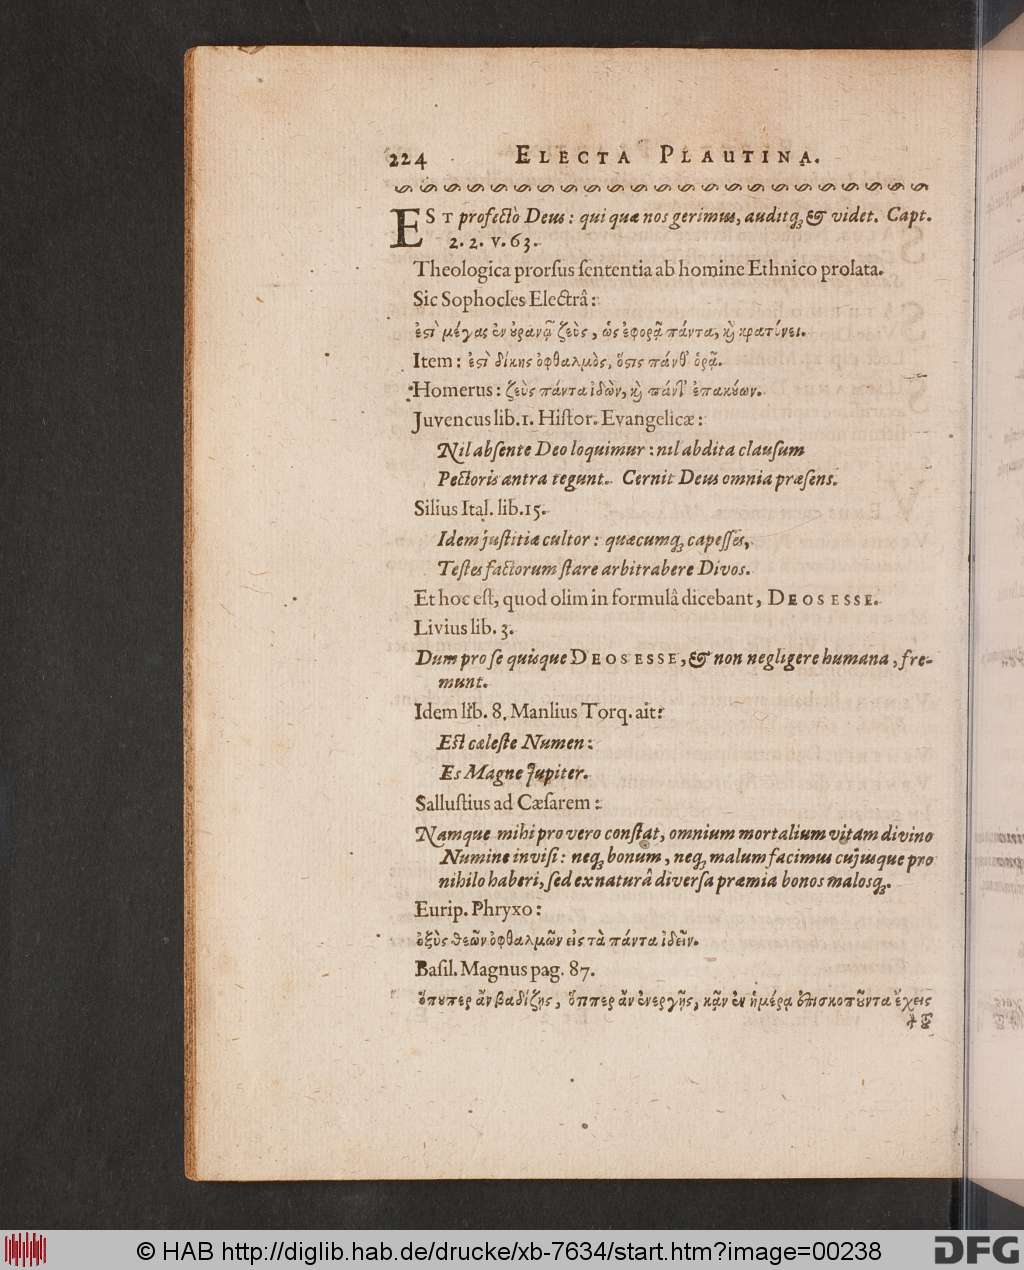 224 ELECTA PLAUTINA.
EST profectò Deus: qui quæ nos gerimus, auditq; & videt. Capt.
2. 2. v. 63.
Theologica prorſus ſententia ab homine Ethnico prolata.
Sic Sophocles Electrâ:
ἐςὶ μέγας ἐν ὐρανῷ ζεὺς, ὡς ἐφορᾷ πάντα, κὴ κρατύνει.
Item: ἐςὶ δίκης ὀφθαλμὸς, ὅςις πάνθ᾽ ὁρᾷ.
Homerus: ζεὺς πάντα ἰδὼν, κὴ πάντ᾽ ἐπακύων.
Juvencus lib. 1. Hiſtor. Evangelicæ:
Nil abſente Deo loquimur: nil abdita clauſum
Pectoris antra tegunt. Cernit Deus omnia præſens.
Silius Ital. lib. 15.
Idem juſtitiæ cultor: quæcumq; capeſſes,
Teſtes factorum ſtare arbitrabere Divos.
Et hoc eſt, quod olim in formulâ dicebant, DEOS ESSE.
Livius lib. 3.
Dum pro ſe quisque DEOS ESSE, & non negligere humana, fre-
munt.
Idem lib. 8. Manlius Torq. ait:
Eſt cæleſte Numen:
Es Magne Jupiter.
Salluſtius ad Cæſarem:
Namque mihi pro vero conſtat, omnium mortalium vitam divino
Numine inviſi: neq; bonum, neq; malum facimus cujusque pro
nihilo haberi, ſed ex naturâ diverſa præmia bonos malosq;.
Eurip. Phryxo:
ὀξὺς θεῶν ὀφθαλμῶν εἰς τὰ πάντα ἰδεῖν.
Baſil. Magnus pag. 87.
ὅπυπερ ἂν βαδίζῃς, ὅππερ ἂν ἐνεργῇς, κᾂν ἐν ἡμέρᾳ ἐπισκοπῦντα ἔχεις
τ
© HAB http://diglib.hab.de/drucke/xb-7634/start.htm?image=00238
DFG